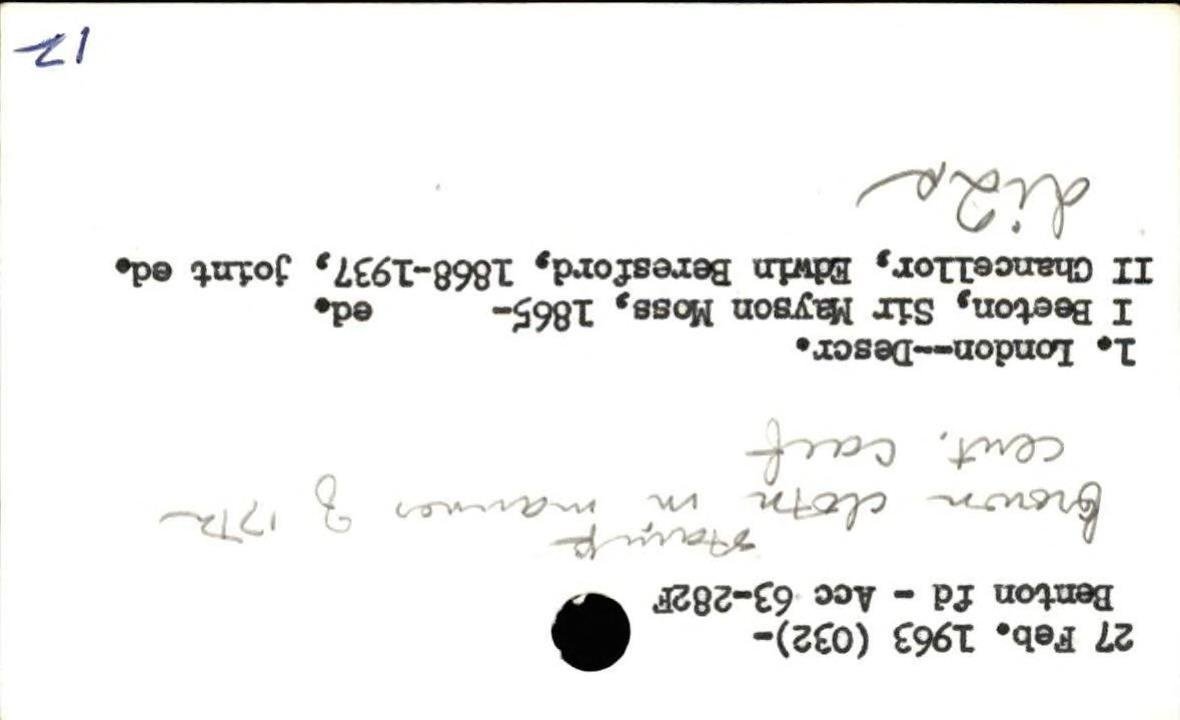 27 Feb. 1963 (032)-
Benton fd - Acc 63-282F
stamp
brown cloth in manner of 17th
cent. calf
1. London--Descr.
I Beeton, Sir Mayson Moss, 1865-     ed.
II Chancellor, Edwin Beresford, 1868-1937, joint ed.
12